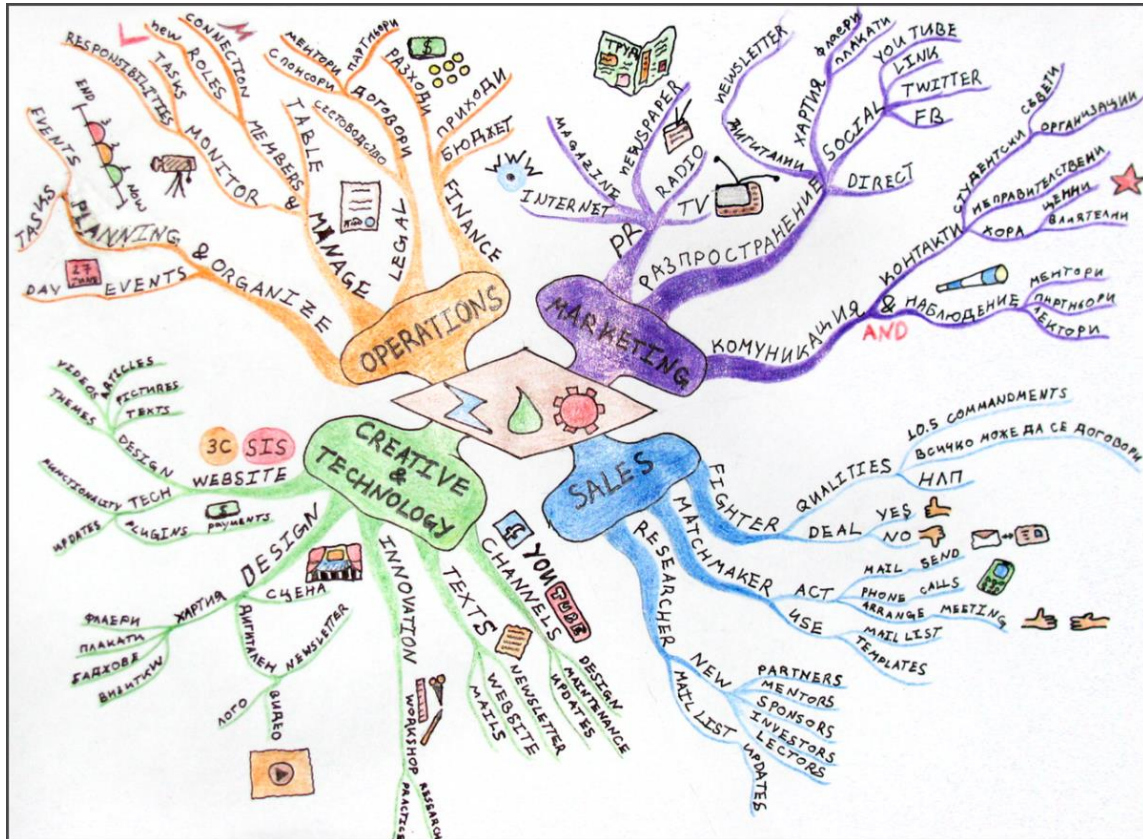 OPERATIONS
PLANNING
& ORGANIZE
EVENTS
TASKS
END
NOW
EVENTS
DAY
27
MANAGE
MEMBERS &
MONITOR
RESPONSIBILITIES
TASKS
ROLES
new
CONNECTION
L
M
TABLE
LEGAL
СЧЕТОВОДСТВО
ДОГОВОРИ
СПОНСОРИ
МЕНТОРИ
ПАРТНЬОРИ
FINANCE
РАЗХОДИ
$
ПРИХОДИ
БЮДЖЕТ
MARKETING
PR
INTERNET
WWW
MAGAZINE
NEWSPAPER
ТРУД
RADIO
TV
РАЗПРОСТРАНЕНИЕ
ДИГИТАЛНИ
NEWSLETTER
ХАРТИЯ
флаери
ПЛАКАТИ
SOCIAL
YOUTUBE
LINK
TWITTER
FB
DIRECT
КОМУНИКАЦИЯ
&
AND
КОНТАКТИ
СТУДЕНТСКИ
СЪВЕТИ
ОРГАНИЗАЦИИ
НЕПРАВИТЕЛСТВЕНИ
ХОРА
ЦЕННИ
ВЛИЯТЕЛНИ
НАБЛЮДЕНИЕ
МЕНТОРИ
ПАРТНЬОРИ
ЛЕКТОРИ
SALES
FIGHTER
QUALITIES
10.5 COMMANDMENTS
ВСИЧКО МОЖЕ ДА СЕ ДОГОВОРИ
НЛП
DEAL
YES
NO
MATCHMAKER
ACT
MAIL SEND
PHONE CALLS
ARRANGE MEETING
USE
MAIL LIST
TEMPLATES
RESEARCHER
NEW
PARTNERS
MENTORS
SPONSORS
INVESTORS
LECTORS
MAIL LIST UPDATES
CREATIVE
&
TECHNOLOGY
WEBSITE
3C
SIS
DESIGN
THEMES
VIDEOS
ARTICLES
PICTURES
TEXTS
TECH
FUNCTIONALITY
UPDATES
PLUGINS
payments
$
DESIGN
ХАРТИЯ
ФЛАЕРИ
ПЛАКАТИ
БАДЖОВЕ
ВИЗИТКИ
ДИГИТАЛЕН
NEWSLETTER
ЛОГО
ВИДЕО
СЦЕНА
INNOVATION
WORKSHOP
PRACTICE
RESEARCH
TEXTS
MAILS
WEBSITE
NEWSLETTER
CHANNELS
f
YOU
TUBE
DESIGN
MAINTENANCE
UPDATES